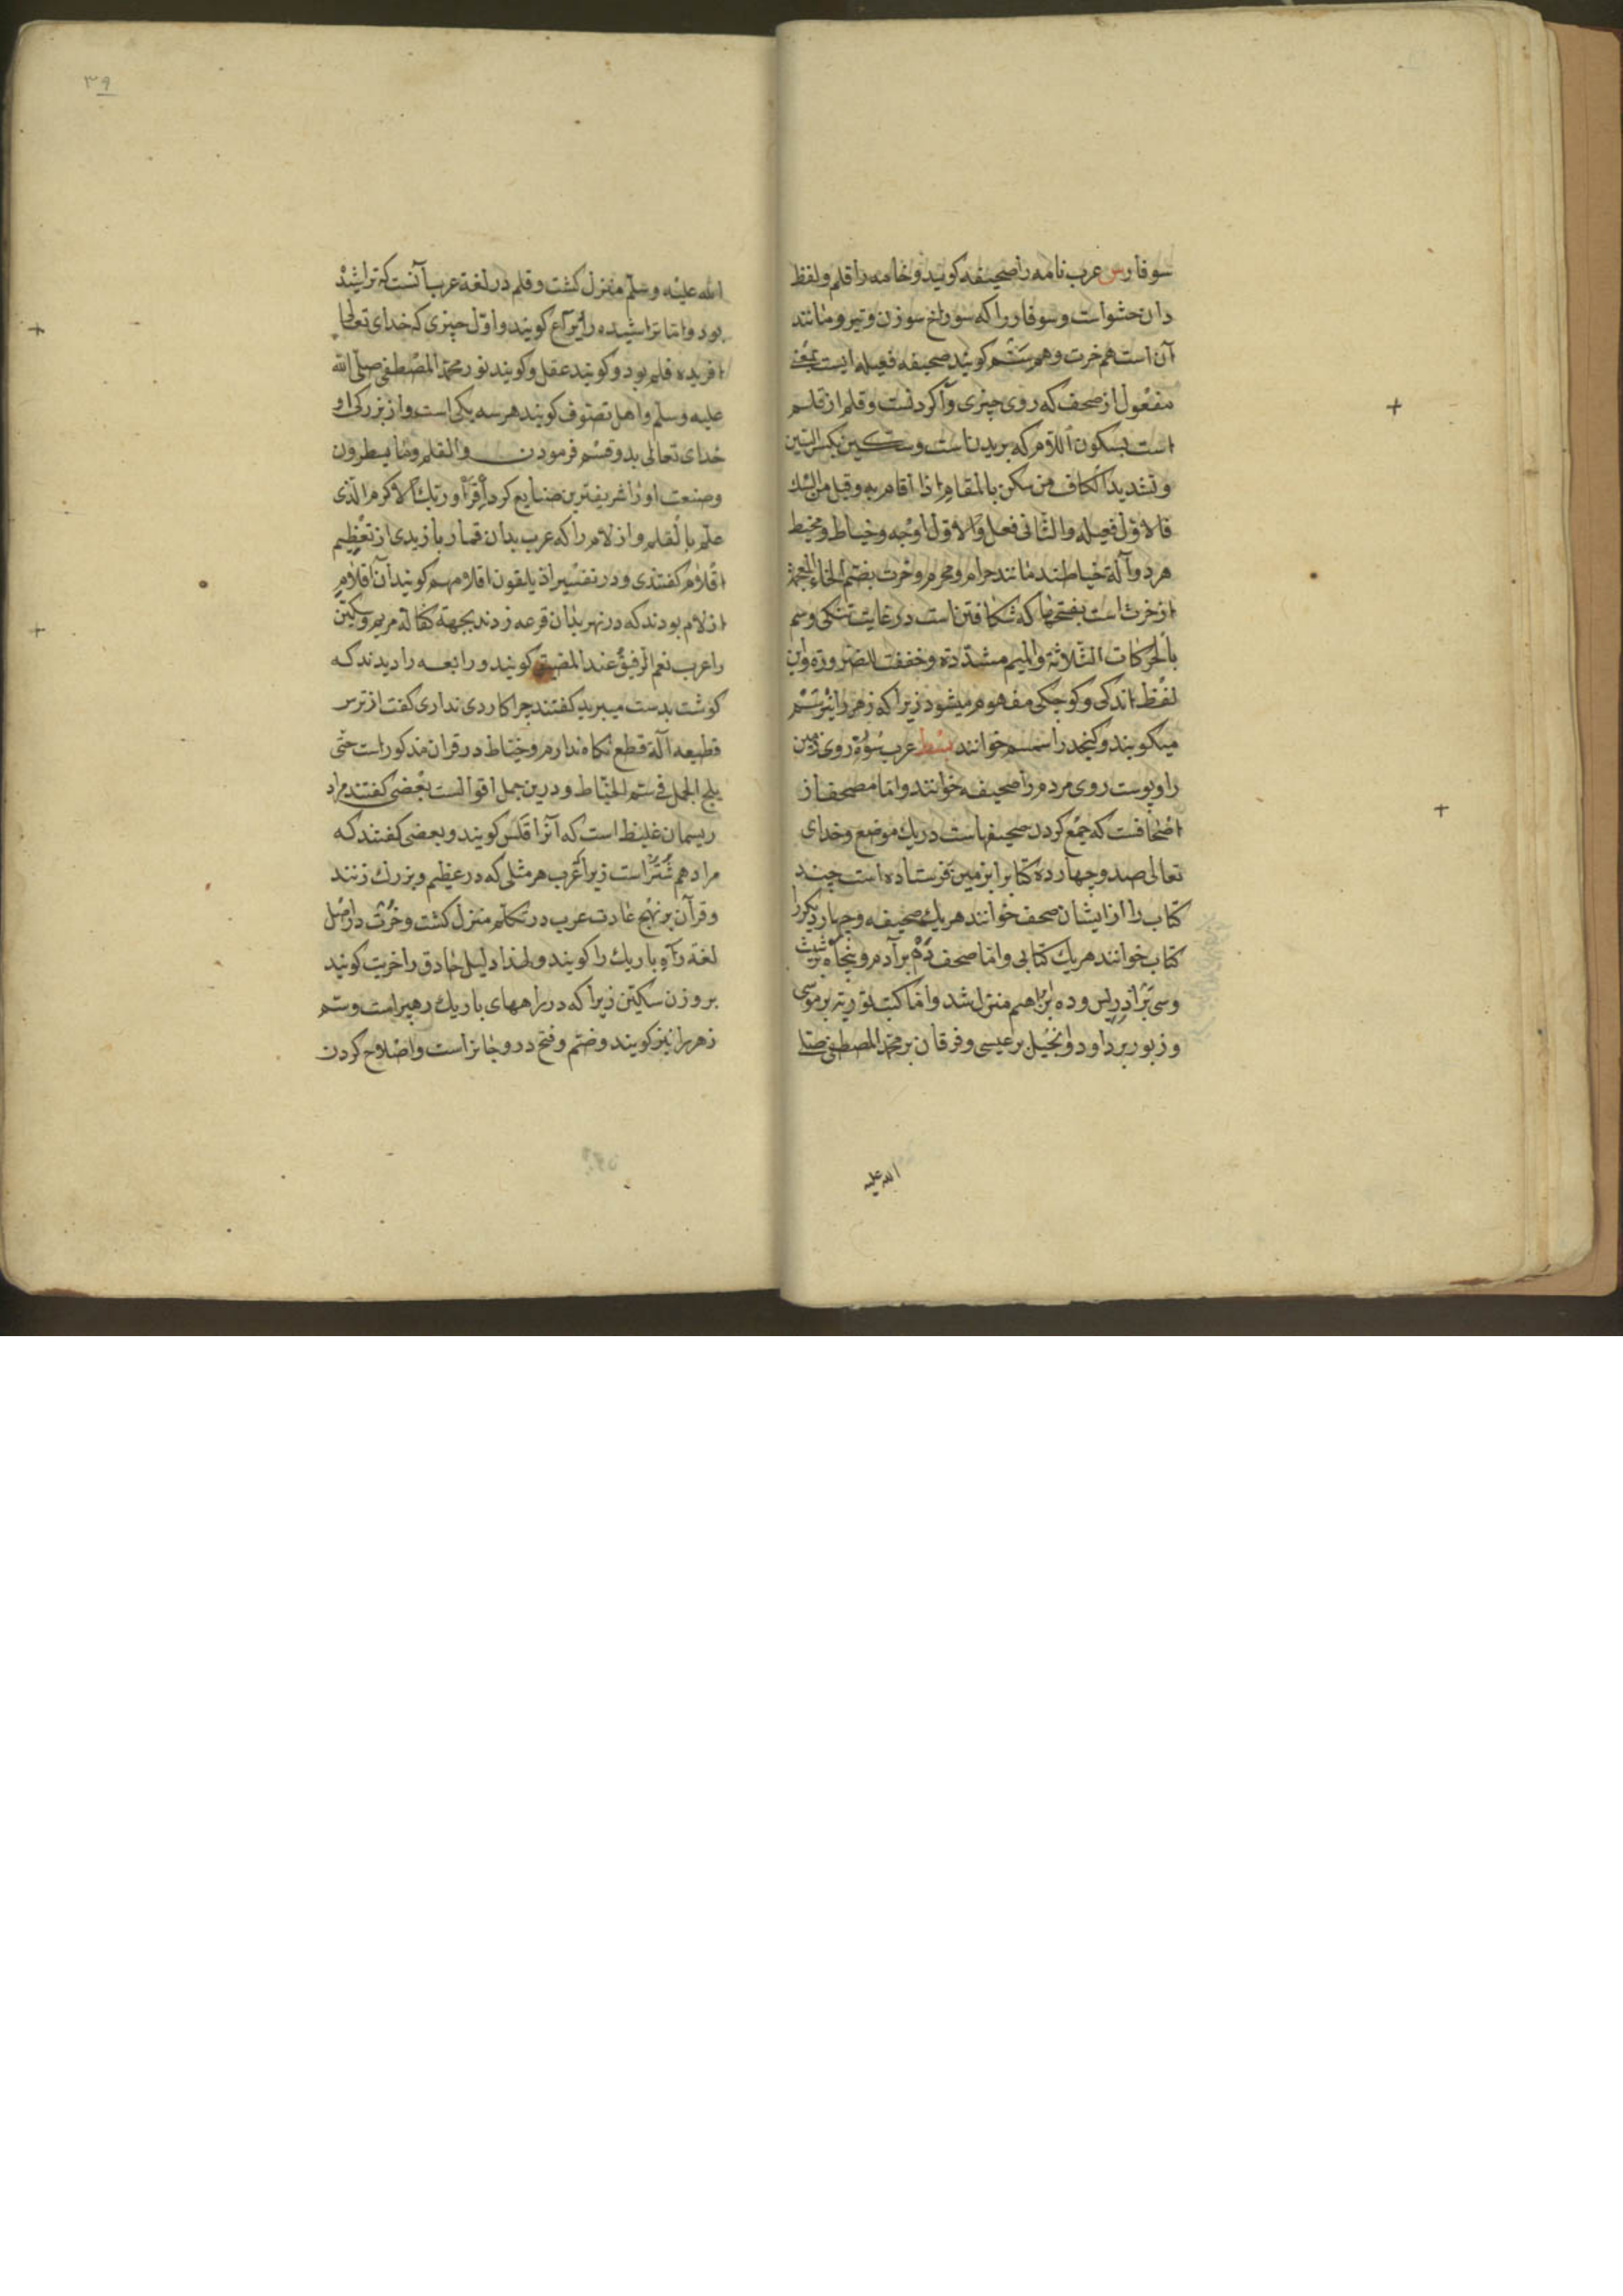 سوفار س عرب نامه را صحیفه کویند و خامه را قلم و لفظ
دان حشو است و سوفار را که سوراخ سوزن و تیر و مانند
آن است هم خرت و هم سم کویند صحیفه فعیله ایست بمعنی
مفعول از صحف که روی چیزی وا کردنست و قلم از قلم
است بسکون اللام که بریدن است و سکین بکسر السین
و تشدید الکاف من سکن بالمقام اذا اقام به وقیل من
فالاول فعیله والثانی فعل والاول اوجه و خیاط و مخیط
هر دو آلة خیاطند مانند حرام و محرم و خرت بضم الخاء المعجمة
از خرت است بفتحها که شکافتن است در غایت تنکی و سم
بالحرکات الثلاثة والمیم مشددة وخففت للضرورة و این
لفظ اندکی و کوچکی مفهوم میشود زیرا که زهر را نیز سم
میکویند و کنجد را سمسم خوانند بسط عرب روی زمین
را و پوست روی مردم را صحیفه خوانند و اما مصحف از
اصحافست که جمع کردن صحیفهاست در یك موضع و خدای
تعالی صد و چهارده کتاب را بزمین فرستاده است چند
کتاب را از ایشان صحف خوانند هر یك صحیفه و چهار دیکر را
کتاب خوانند هر یك کتابی و اما صحف ده بر آدم و پنجاه بر شیث
و سی بر ادریس و ده بر ابراهیم منزل شد و اما کتب توریة بر موسی
و زبور بر داود و انجیل بر عیسی و فرقان بر محمد المصطفی صلی
الله علیه
٣٩
الله علیه وسلم منزل کشت و قلم در لغة عرب آنست که تراشیده
بود و اما نا تراشیده را یراع کویند و اول چیزی که خدای تعالی
افریده قلم بود و کویند عقل و کویند نور محمد المصطفی صلی الله
علیه وسلم و اهل تصوف کویند هر سه یکی است و از بزرکی او
خدای تعالی بدو قسم فرمود ن والقلم وما یسطرون
و صنعت او را شریفترین صنایع کرد اقرأ وربك الاکرم الذی
علم بالقلم و ازلام را که عرب بدان قمار بازیدی از تعظیم
اقلام کفتندی و در تفسیر اذ یلقون اقلامهم کویند آن اقلام
ازلام بودند که در نهر بدان قرعه زدند بجهة کفالة مریم و سکین
را عرب نعم الرفیق عند المضیق کویند و رابعه را دیدند که
کوشت بدست میبرید کفتند چرا کاردی نداری کفت از ترس
قطیعه آلة قطع نکاه ندارم و خیاط در قران مذکور است حتی
یلج الجمل فی سم الخیاط و درین جمل اقوالست بعضی کفتند مراد
ریسمان غلیظ است که آنرا قلس کویند و بعضی کفتند که
مراد هم شتر است زیرا عرب هر مثلی که در عظیم و بزرك زنند
و قرآن بر نهج عادت عرب در تکلم منزل کشت و خرت در اصل
لغة راه باریك را کویند و لهذا دلیل حاذق را خریت کویند
بر وزن سکین زیرا که در راههای باریك رهبر است و سم
زهر را نیز کویند و ضم و فتح درو جایز است و اصلاح کردن